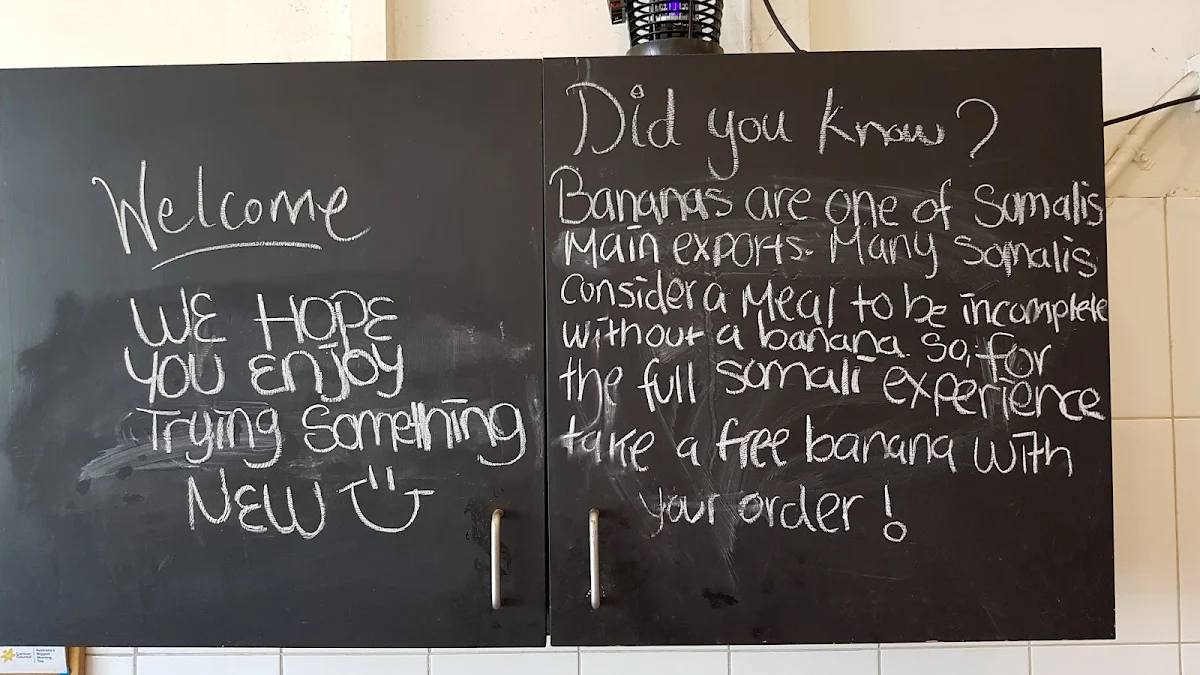 Welcome
WE HOPE
YOU ENJOY
Trying Something
NEW
Did you know?
Bananas are one of Somalis
Main exports. Many Somalis
consider a Meal to be incomplete
without a banana. So, for
the full somali experience
take a free banana with
your order!
Cancer
Council
Australia's
Biggest
Morning
Tea